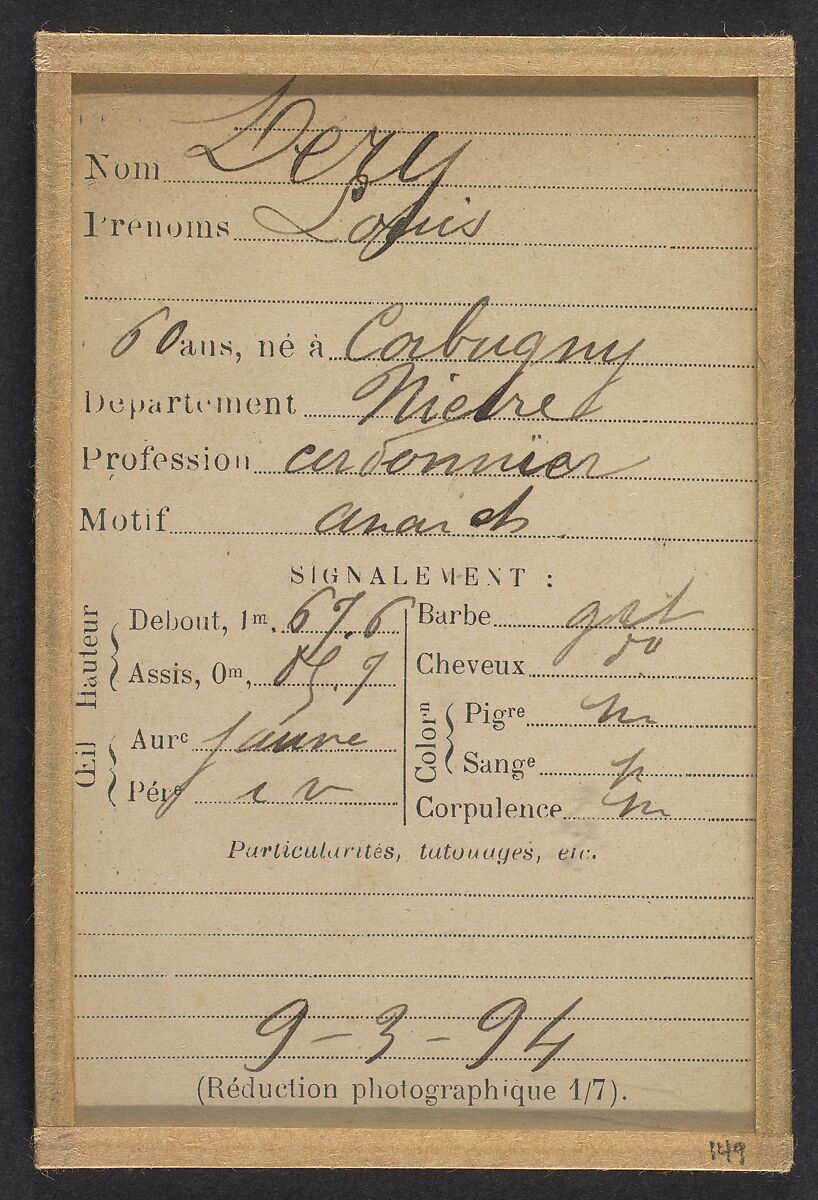 Nom Dery
Prénoms Louis
60 ans, né à Corbugny
Département Nièvre
Profession cordonnier
Motif anarch
SIGNALEMENT :
Hauteur
Debout, 1m, 67.6
Assis, 0m, 85.9
Œil
Aure jaune
Pére i v
Barbe gris
Cheveux do
Colorn
Pigre m
Sange p
Corpulence m
Particularités, tatouages, etc.
9-3-94
(Réduction photographique 1/7).
149